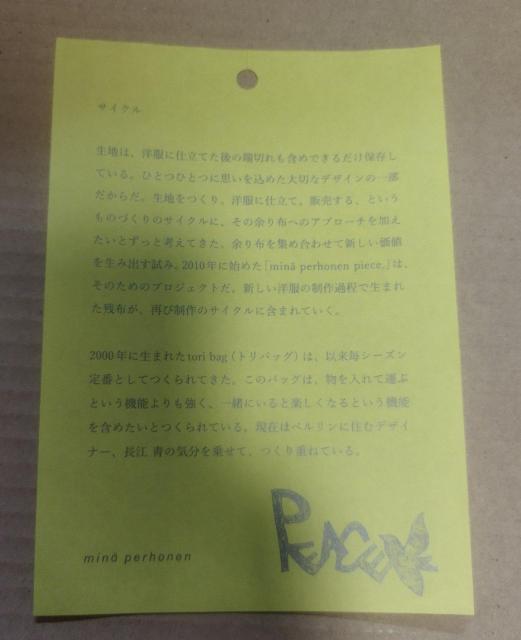 サイクル
生地は、洋服に仕立てた後の端切れも含めできるだけ保存し
ている。ひとつひとつに思いを込めた大切なデザインの一部
だからだ。生地をつくり、洋服に仕立て、販売する、という
ものづくりのサイクルに、その余り布へのアプローチを加え
たいとずっと考えてきた。余り布を集め合わせて新しい価値
を生み出す試み。2010年に始めた「minä perhonen piece,」は、
そのためのプロジェクトだ。新しい洋服の制作過程で生まれ
た残布が、再び制作のサイクルに含まれていく。
2000年に生まれたtori bag（トリバッグ）は、以来毎シーズン
定番としてつくられてきた。このバッグは、物を入れて運ぶ
という機能よりも強く、一緒にいると楽しくなるという機能
を含めたいとつくられている。現在はベルリンに住むデザイ
ナー、長江 青の気分を乗せて、つくり重ねている。
minä perhonen